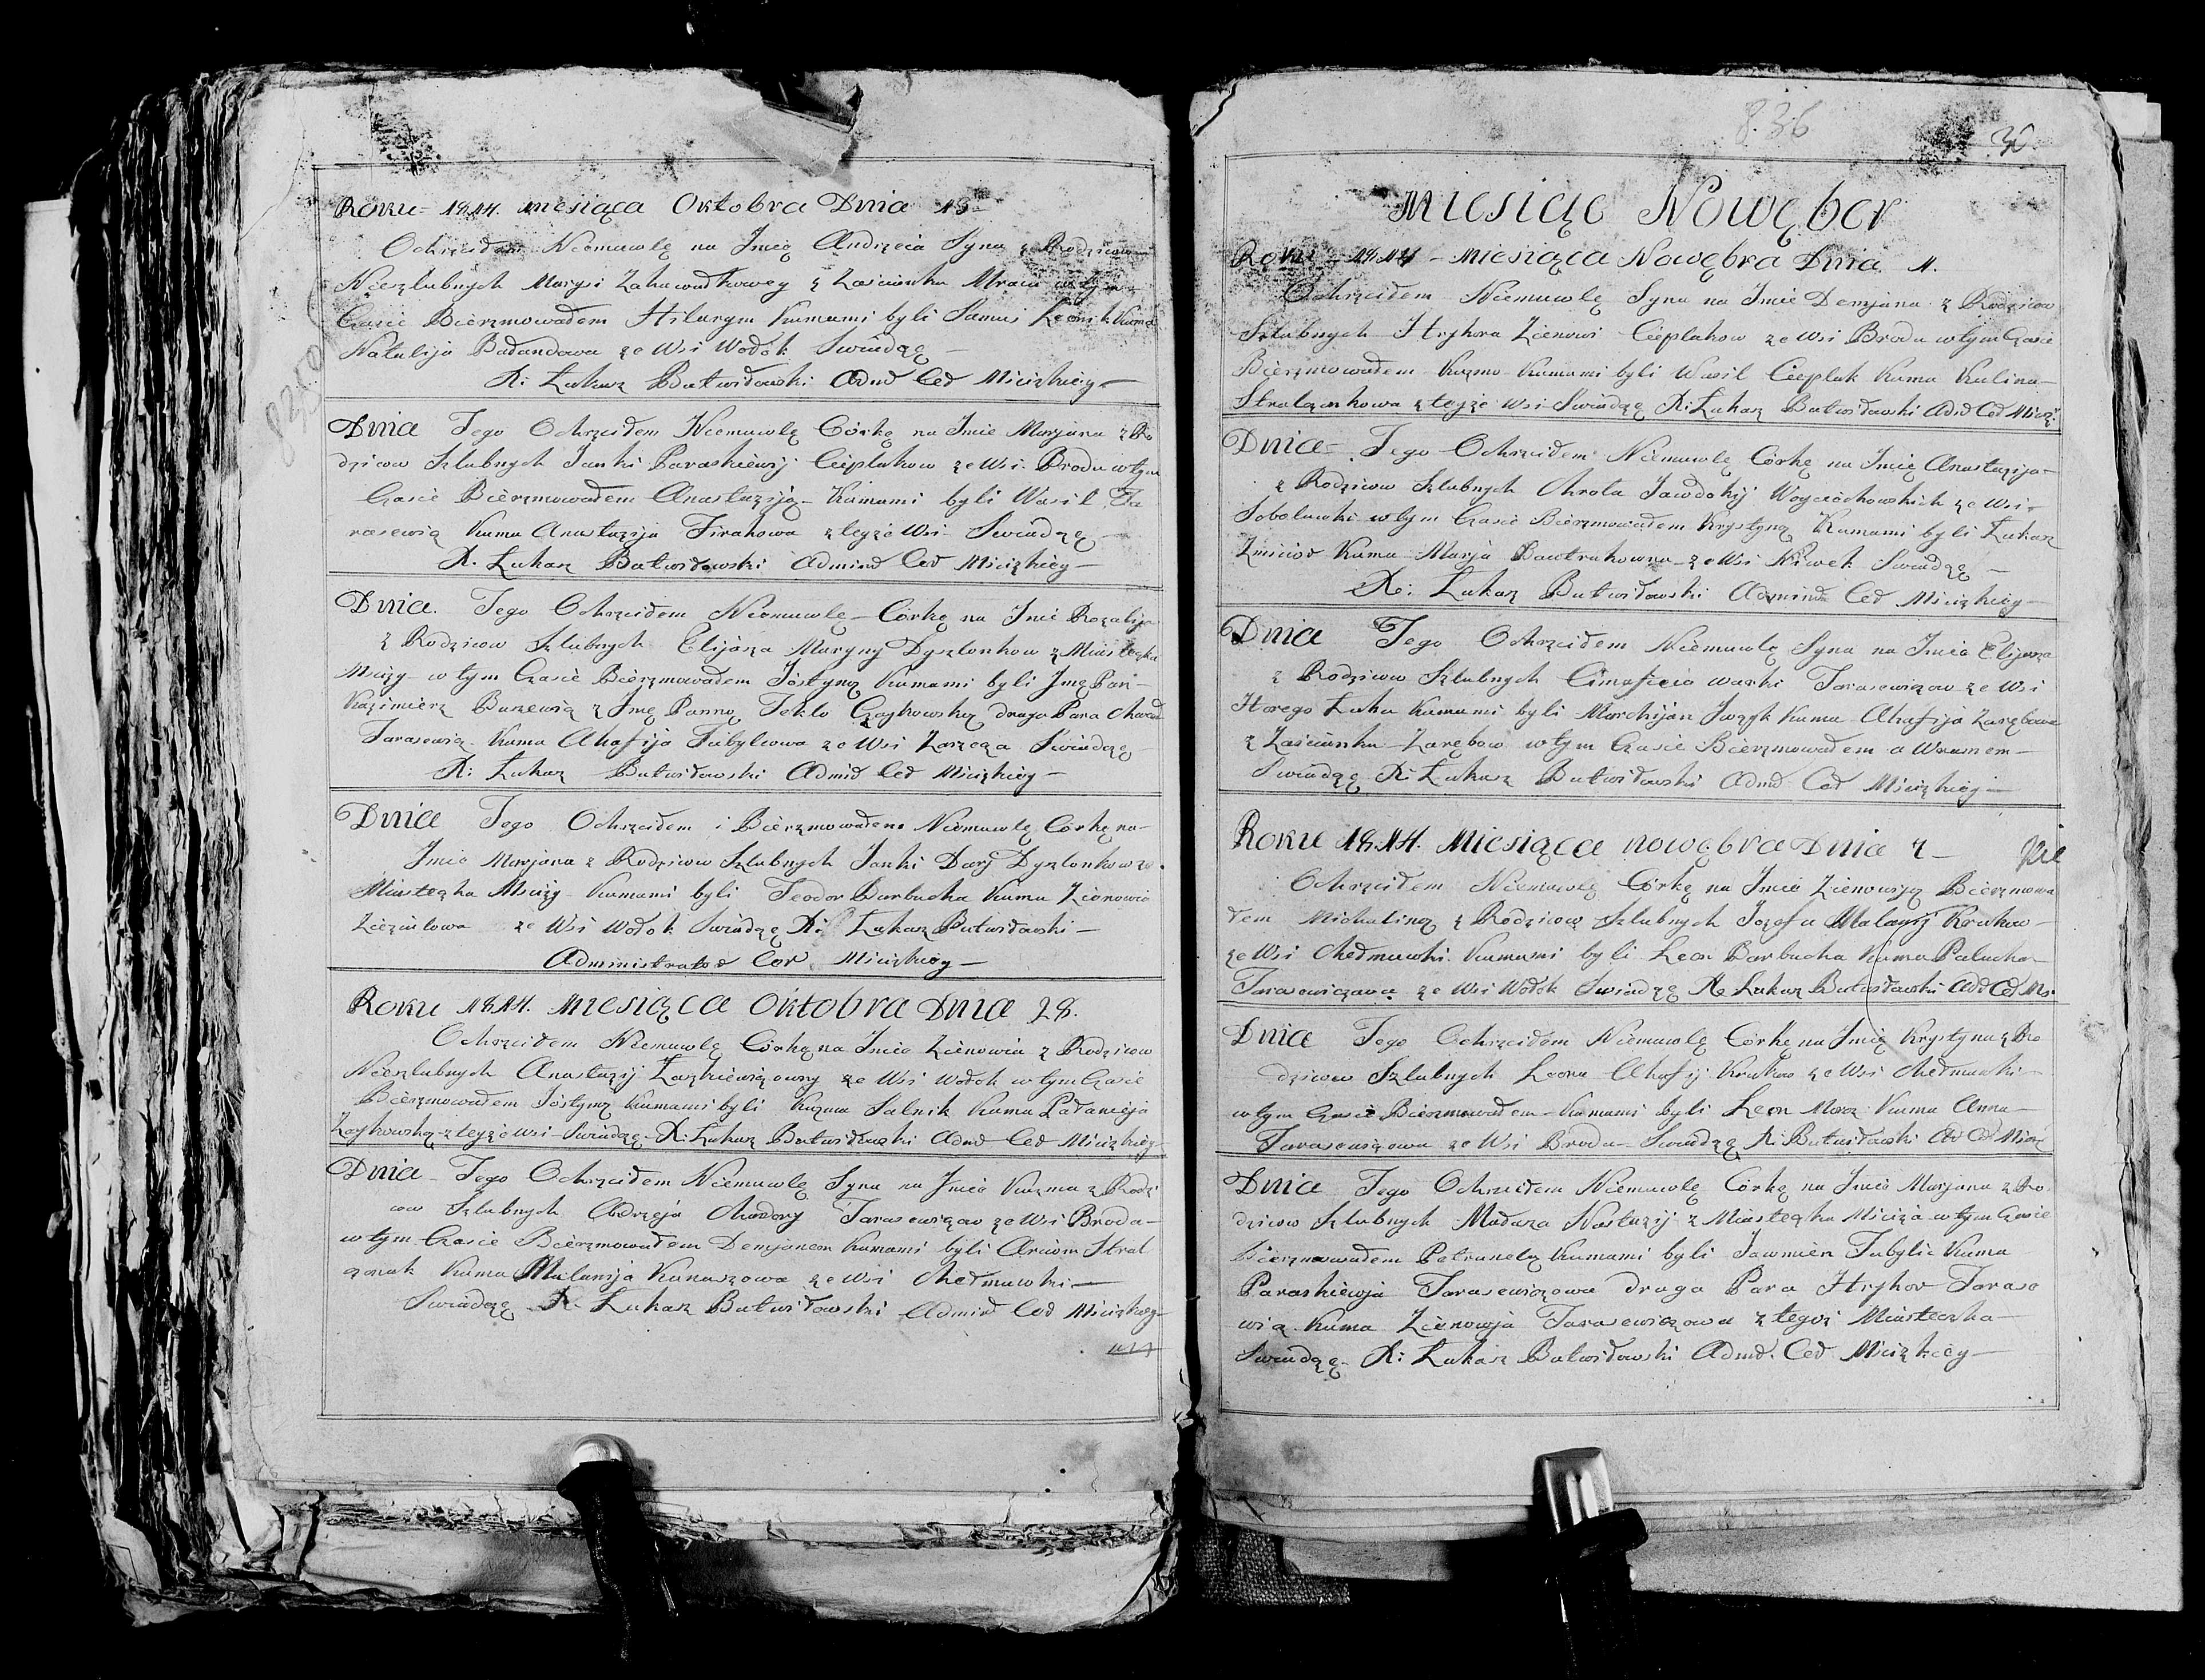 Roku 1814. Miesiąca Oktobra Dnia 18
Ochrzciłem Niemowlę na Jmię Andrzeia Syna z Rodzicow
Nieszlubnych Marysi z Zascianku w tym
Czasie Bierzmowałem Hilarym Kumami byli Samuś Kuma
Natalija ze Wsi Wołok Swiadczę
X: Łukasz Butwiłowski Admł Ceł Mściżkiey
Dnia Tego Ochrzciłem Niemowlę Córkę na Jmie Marjana z Ro
dzicow Szlubnych Janki Paraskiewij Cieplakow ze Wsi Brodu w tym
Czasie Bierzmowałem Anastaziją Kumami byli Wasil Ta
rasewicz Kuma Anastazija Firahowa z teyże Wsi Swiadczę
X. Łukasz Butwiłowski Adminł Ceł Mściżkiey
Dnia Tego Ochrzciłem Niemowlę Córkę na Jmie Rozalija
z Rodzicow Szlubnych Elijasza Maryny Dyszlonkow z Miasteczka
Mściży w tym Czasie Bierzmowałem Jóstyną Kumami byli Jmę Pan
Kazimierz Buszewicz z Jmę Panną Teklą Czaykowską druga Para
Tarasewicz Kuma Ahafija Tubylcowa ze Wsi Zarzecza Swiadczę
X: Łukasz Butwiłowski Admił Ceł Mściżkiey
Dnia Tego Ochrzciłem i Bierzmowałem Niemowlę Córkę na
Jmie Marjana z Rodzicow Szlubnych Janki Darj Dyszlonkow ze
Miasteczka Mściży Kumami byli Teodor Barbucha Kuma Zienowia
ze Wsi Wołok Swiadczę X: Łukasz Butwiłowski
Administrator Cer Mściżkiey
Roku 1814. Miesiąca Oktobra Dnia 28.
Ochrzciłem Niemowlę Córkę na Jmie Zienowia z Rodzicow
Nieszlubnych Anastazij Łazkiewiczowny ze Wsi Wołok w tym Czasie
Bierzmowałem Jóstyną Kumami byli Kuzma Salnik Kuma Pałanieja
z teyże Wsi Swiadczę X: Łukasz Butwiłowski Admł Ceł Mściżkiey
Dnia Tego Ochrzciłem Niemowlę Syna na Jmie Kuzma z Rodzi
cow Szlubnych Andrzeja Chwedory Tarasewiczow ze Wsi Broda
w tym Czasie Bierzmowałem Demjanem Kumami byli Arciom Stral
czonak Kuma Malanija Kanaszowa ze Wsi Chełmawki
Swiadczę X. Łukasz Butwiłowski Admił Ceł Mściżkiey
836
30
Miesiąc Nowęber
Roku 1814 Miesiąca Nowębra Dnia 1.
Ochrzciłem Niemowlę Syna na Jmie Demjana z Rodzicow
Szlubnych Hryhora Zienowi Cieplakow ze Wsi Brodu w tym Czasie
Bierzmowałem Kuzmo Kumami byli Wasil Cieplak Kuma Kulina
Stralczonkowa z teyże Wsi Swiadczę X: Łukasz Butwiłowski Admł Ceł Mściż
Dnia Tego Ochrzciłem Niemowlę Córkę na Jmię Anastazija
z Rodzicow Szlubnych Chrola Jawdokij Woyciechowskich ze Wsi
Sobolewki w tym Czasie Bierzmowałem Krystyną Kumami byli Łukasz
Kuma Marja Bautrukowna ze Wsi Niwek Swiadczę
X: Łukasz Butwiłowski Adminł Ceł Mściżkiey
Dnia Tego Ochrzciłem Niemowlę Syna na Jmie Elijasza
z Rodzicow Szlubnych Cimofieia Warki Tarasewiczow ze Wsi
Horego Łuha Kumami byli Marchijan Kuma Ahafija Zarębowa
z Zaścianku Zarębow w tym Czasie Bierzmowałem
Swiadczę X: Łukasz Butwiłowski Admł Ceł Mściżkiej
Roku 1814. Miesiąca Nowębra Dnia 4
Ochrzciłem Niemowlę Córkę na Jmie Zienowiją Bierzmowa
łem Michaliną z Rodzicow Szlubnych Jozefa Malanij Krukow
ze Wsi Chełmawki Kumami byli Leon Barbucha Kuma Palucha
Tarasewiczowa ze Wsi Wołok Swiadczę X Łukasz Butwiłowski Ad Ceł Mś
Dnia Tego Ochrzciłem Niemowlę Córkę na Jmię Krystyna z Ro
dzicow Szlubnych Leona Ahafij Krukow ze Wsi Chełmawki
w tym Czasie Bierzmowałem Kumami byli Leon Moroz Kuma Anna
Tarasewiczowa ze Wsi Broda Swiadczę X: Butwiłowski Ad Ceł Mściż
Dnia Tego Ochrzciłem Niemowlę Córkę na Jmie Marjana z Ro
dzicow Szlubnych Nastazij z Miasteczka Mściża w tym Czasie
Bierzmowałem Petrunelą Kumami byli Jawmien Tubylic Kuma
Paraskiewja Tarasewiczowa druga Para Hryhor Tarase
wicz Kuma Zienowja Tarasewiczowa z tegoż Miasteczka
Swiadczę X: Łukasz Butwiłowski Admł. Ceł Mściżkiey